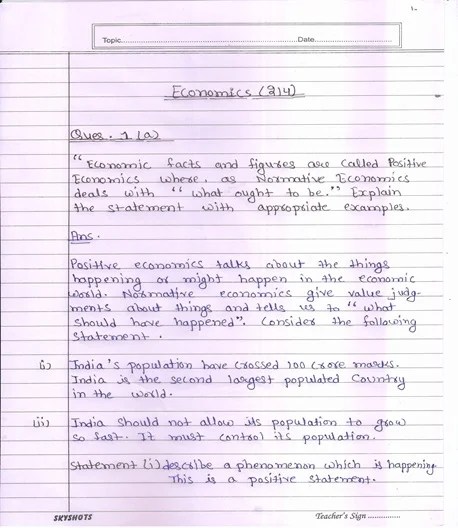 1-
Topic........................................................Date..............................
Economics (214)
Ques. 1 (a)
"Economic facts and figures are called Positive
Economics where. as Normative Economics
deals with "what ought to be." Explain
the statement with appropriate examples.
Ans.
Positive economics talks about the things
happening or might happen in the economic
world. Normative economics give value judg-
ments about things and tells us to "what
should have happened". Consider the following
Statement.
i) India's population have crossed 100 crore marks.
India is the second largest populated Country
in the world.
ii) India should not allow its population to grow
so fast. It must control its population.
Statement (i) describe a phenomenon which is happening.
This is a positive statement.
SKYSHOTS
Teacher's Sign ...............